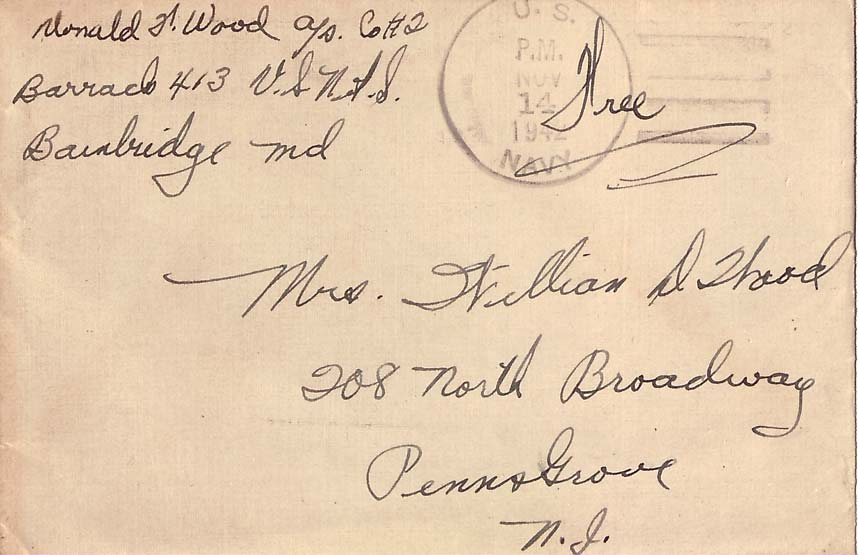 Donald F. Wood A/S. Co 42
Barrack 413 U.S.N.T.S.
Bainbridge Md
U. S.
P.M.
NOV
14
1942
NAVY
Free
Mrs. William D Wood
208 North Broadway
Penns Grove
N. J.